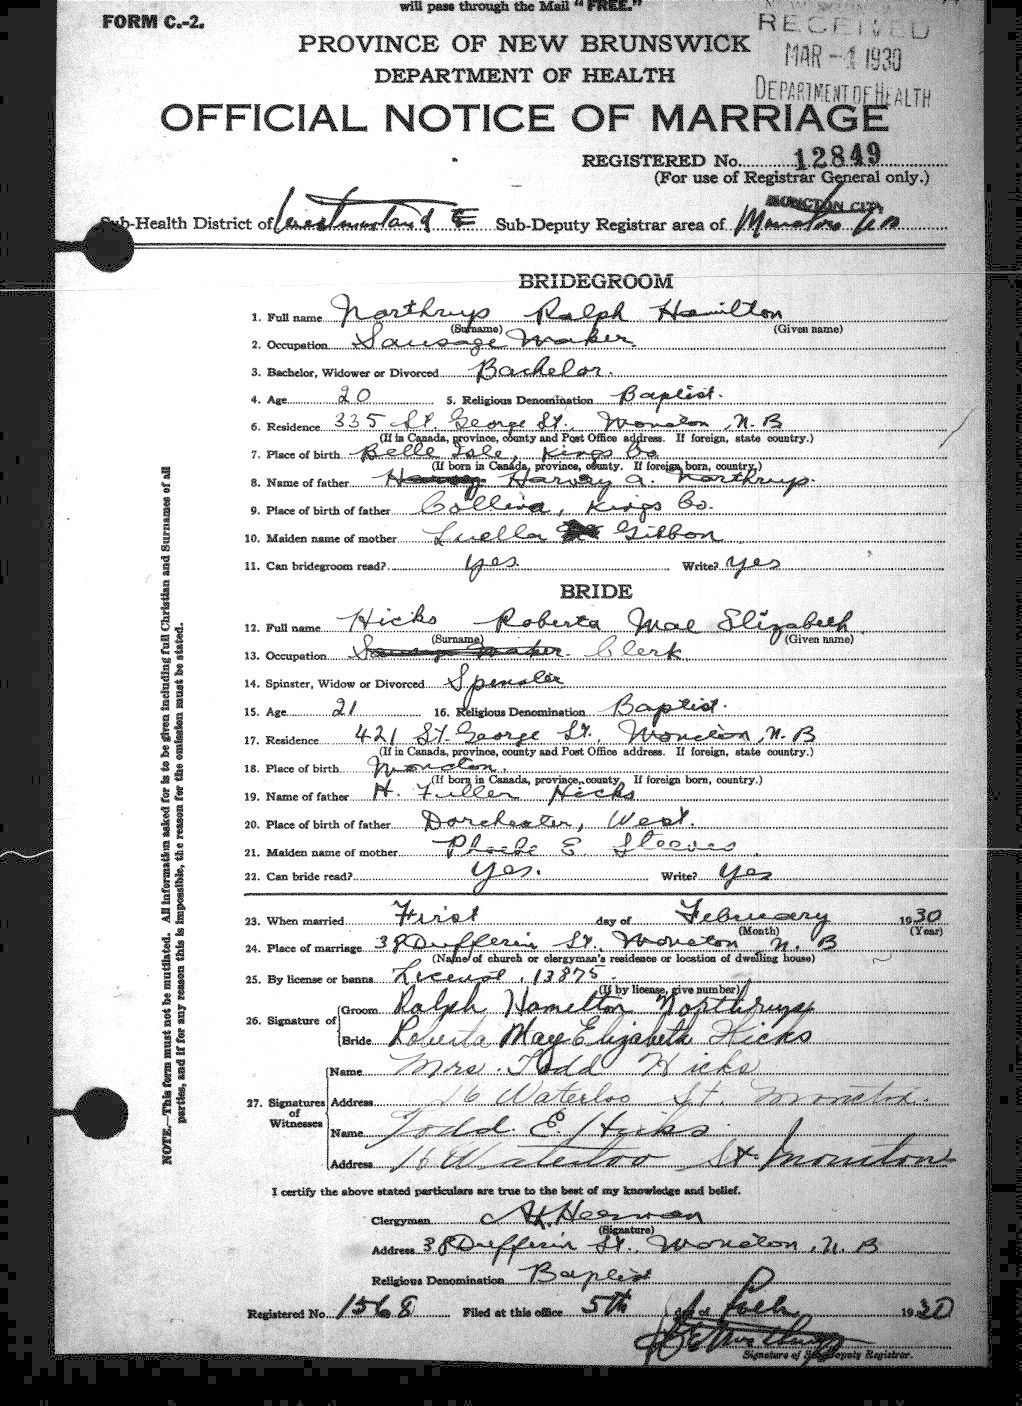 will pass through the Mail "FREE."
FORM C.-2.
RECEIVED
MAR - 1 1930
DEPARTMENT OF HEALTH
PROVINCE OF NEW BRUNSWICK
DEPARTMENT OF HEALTH
OFFICIAL NOTICE OF MARRIAGE
REGISTERED No. 12849
(For use of Registrar General only.)
MONCTON CITY
Sub-Health District of Westmorland E Sub-Deputy Registrar area of Moncton
BRIDEGROOM
1. Full name Northrup Ralph Hamilton
(Surname) (Given name)
2. Occupation Sausage Maker
3. Bachelor, Widower or Divorced Bachelor.
4. Age 20 5. Religious Denomination Baptist.
6. Residence 335 St. George St., Moncton, N. B
(If in Canada, province, county and Post Office address. If foreign, state country.)
7. Place of birth Belle Isle, Kings Co
(If born in Canada, province, county. If foreign born, country.)
8. Name of father Harvey A. Northrup.
9. Place of birth of father Collina, Kings Co.
10. Maiden name of mother Luella Gibbon
11. Can bridegroom read? yes. Write? yes
BRIDE
12. Full name Hicks Roberta Mae Elizabeth
(Surname) (Given name)
13. Occupation Sausage Maker. Clerk.
14. Spinster, Widow or Divorced Spinster
15. Age 21 16. Religious Denomination Baptist.
17. Residence 421 St. George St., Moncton, N. B
(If in Canada, province, county and Post Office address. If foreign, state country.)
18. Place of birth Moncton.
(If born in Canada, province, county. If foreign born, country.)
19. Name of father H. Fuller Hicks
20. Place of birth of father Dorchester, West.
21. Maiden name of mother Phoebe E. Steeves
22. Can bride read? Yes. Write? yes
23. When married First day of February 1930
(Month) (Year)
24. Place of marriage 38 Dufferin St., Moncton, N. B
(Name of church or clergyman's residence or location of dwelling house)
25. By license or banns License, 13875
(If by license, give number)
26. Signature of Groom Ralph Hamelton Northrup
Bride Roberta May Elizabeth Hicks
27. Signatures of Witnesses
Name Mrs. Todd Hicks
Address 16 Waterloo St. Moncton.
Name Todd. E. Hicks
Address 16 Waterloo St Moncton
I certify the above stated particulars are true to the best of my knowledge and belief.
Clergyman
(Signature)
Address 38 Dufferin St. Moncton, N. B
Religious Denomination Baptist
Registered No. 1568 Filed at this office 5th day of Feb 1930
Signature of Sub-Deputy Registrar.
NOTE.—This form must not be mutilated. All information asked for is to be given including full Christian and Surnames of all
parties, and if for any reason this is impossible, the reason for the omission must be stated.